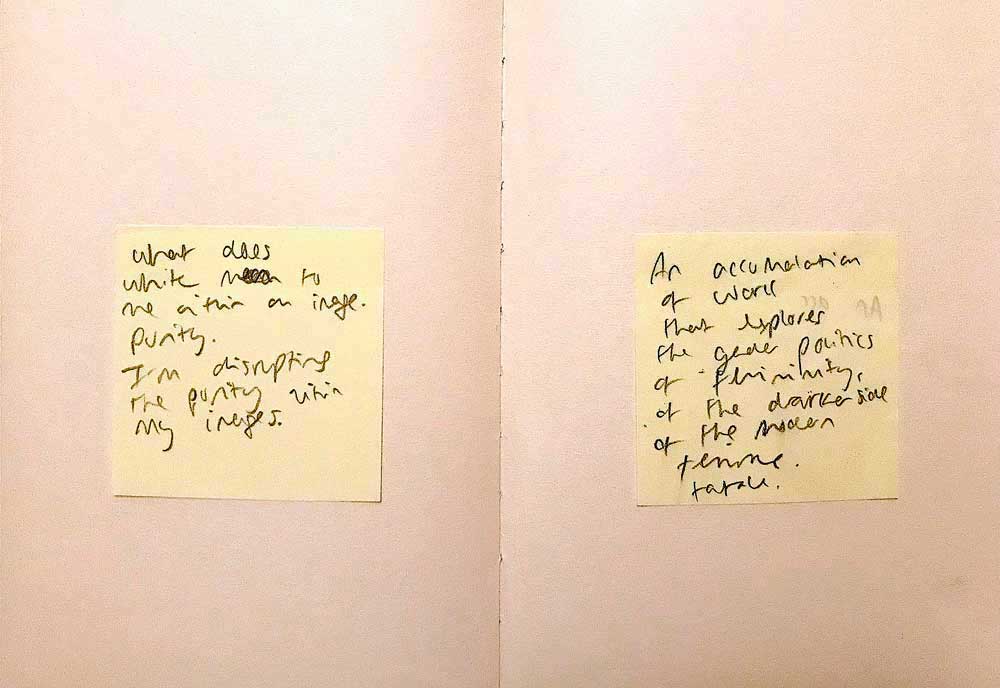 what does
white mean to
me within an image.
purity.
I'm disrupting
the purity within
my images.
An accumulation
of work
that explores
the gender politics
of femininity,
of the darker side
of the modern
femme.
fatale.
An acc